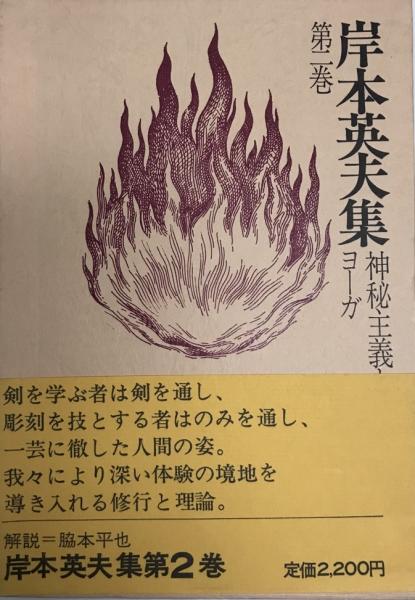 岸本英夫集
第二巻
神秘主義、
ヨーガ
剣を学ぶ者は剣を通し、
彫刻を技とする者はのみを通し、
一芸に徹した人間の姿。
我々により深い体験の境地を
導き入れる修行と理論。
解説＝脇本平也
岸本英夫集第2巻
定価2,200円